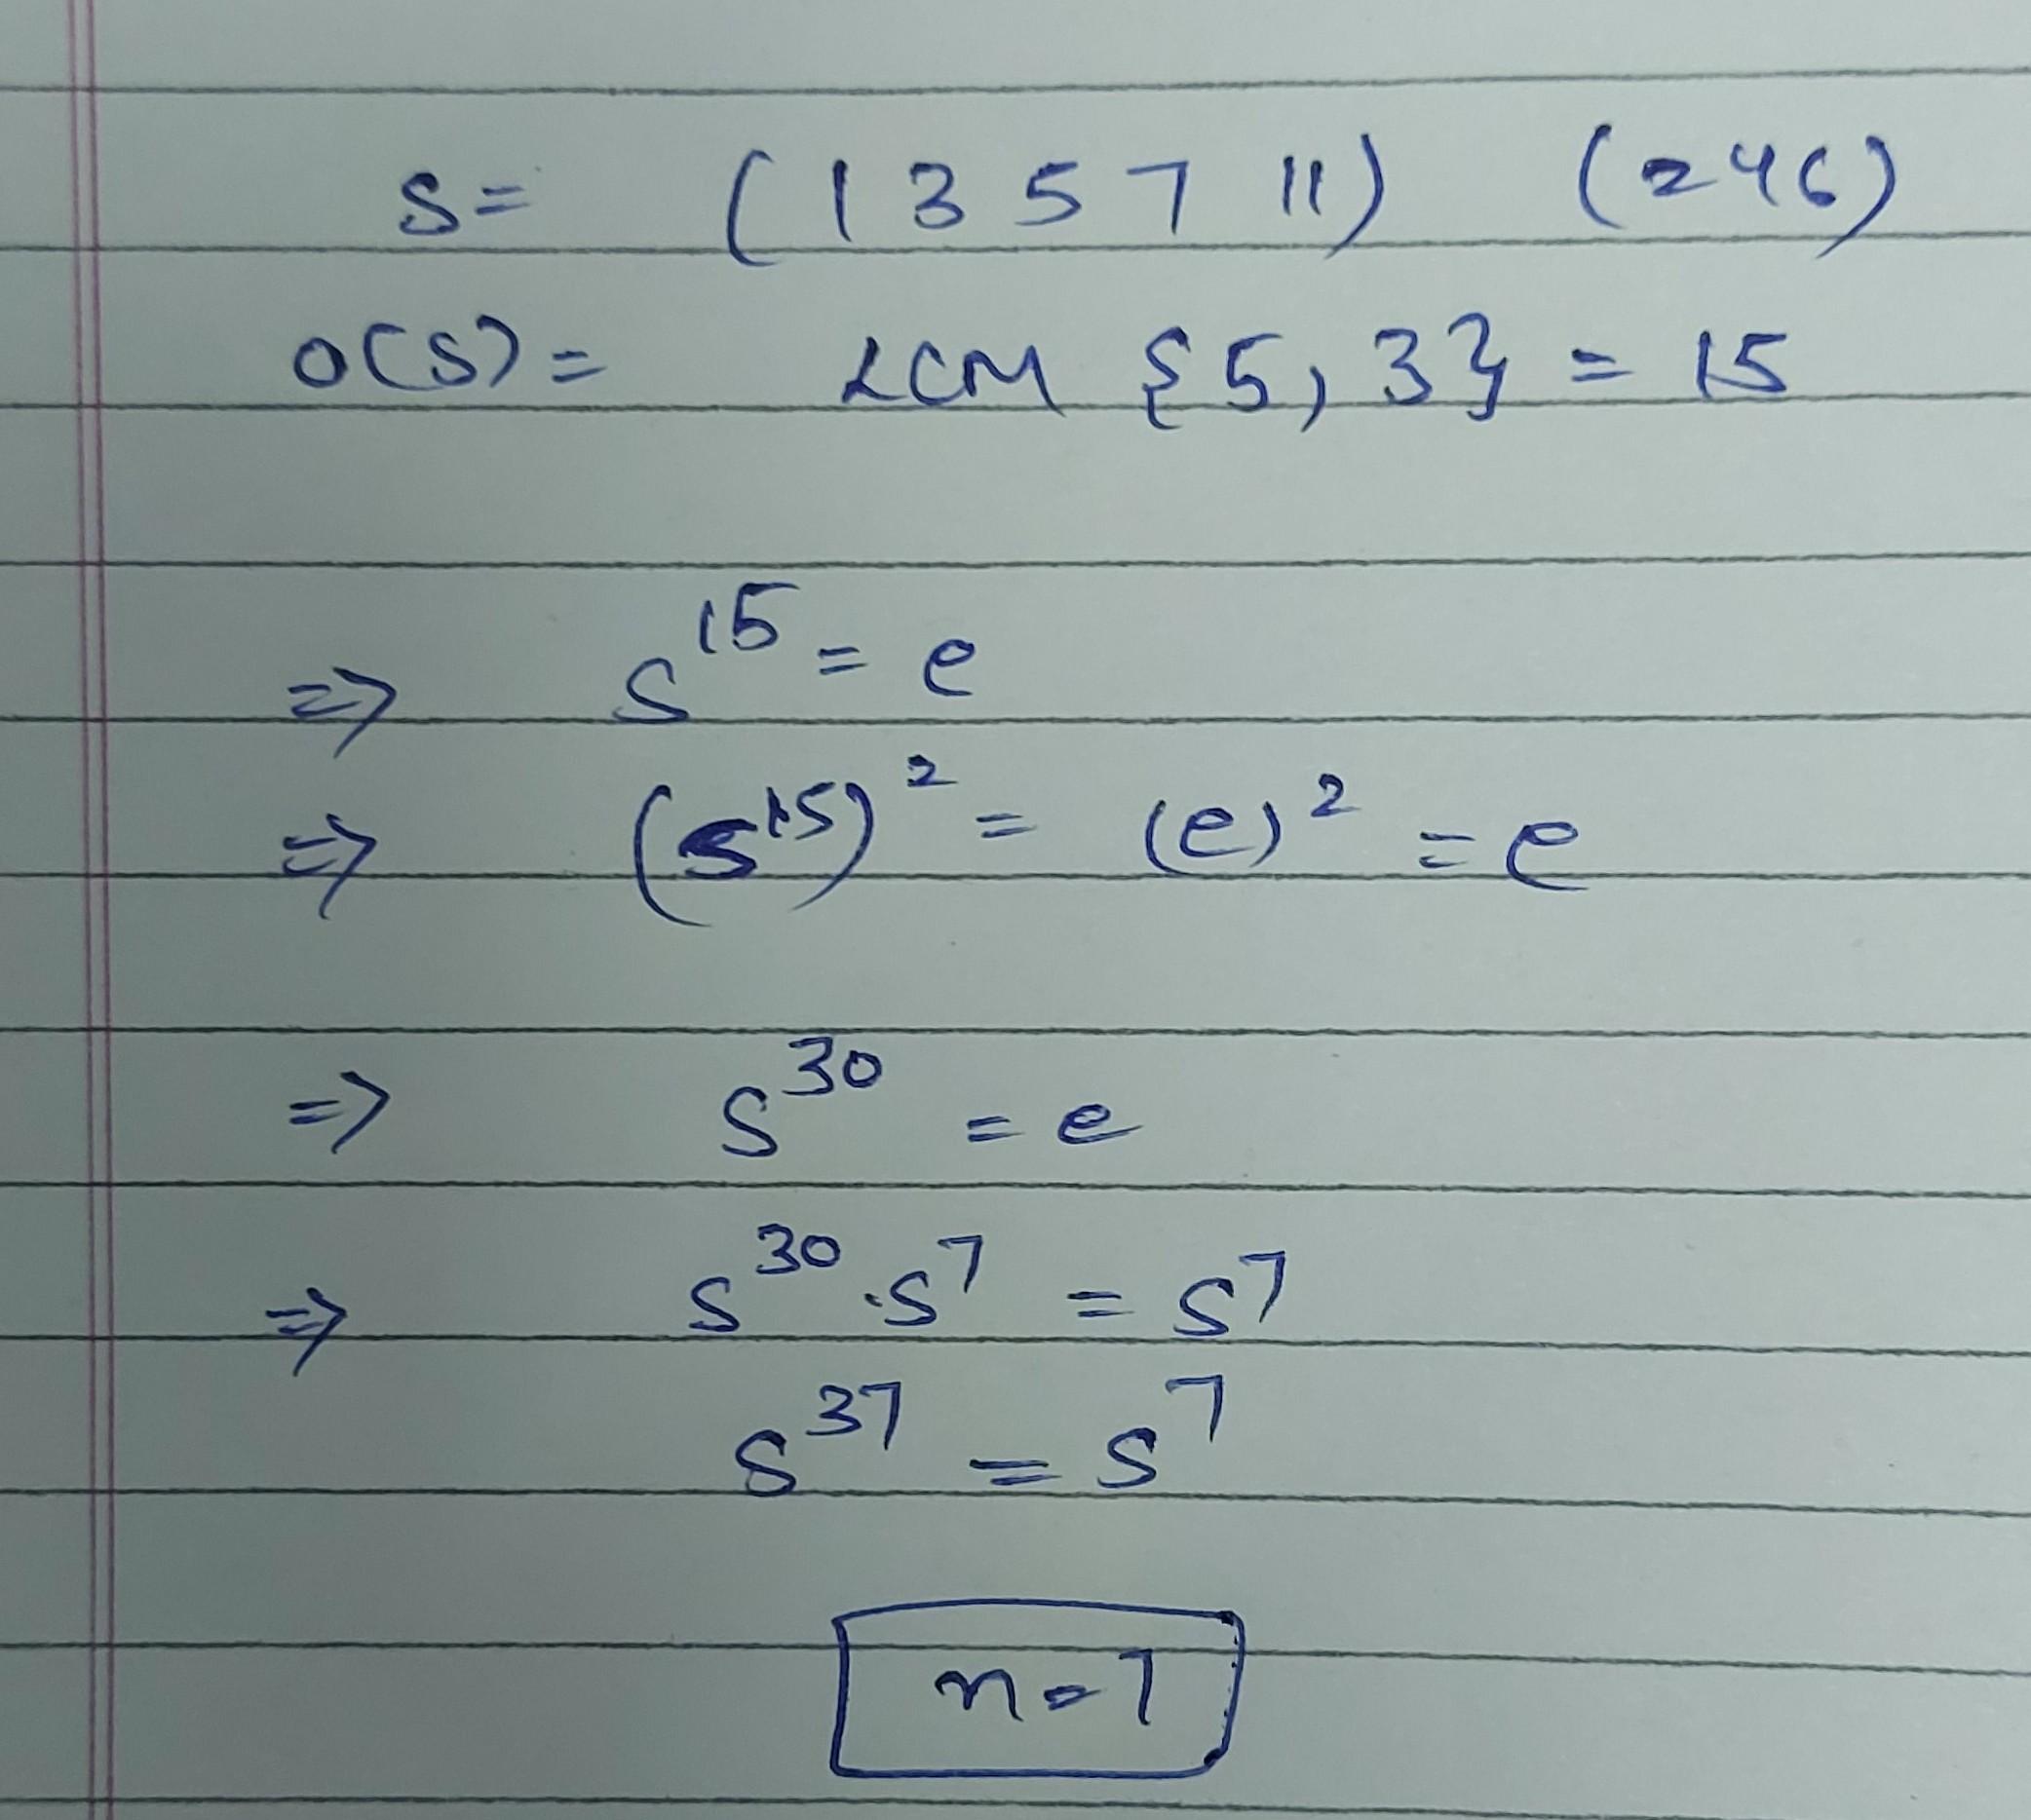 S = (1 3 5 7 11) (2 4 6)
O(S) = LCM {5, 3} = 15
⇒ S^15 = e
⇒ (S^15)^2 = (e)^2 = e
⇒ S^30 = e
⇒ S^30 . S^7 = S^7
S^37 = S^7
n = 7